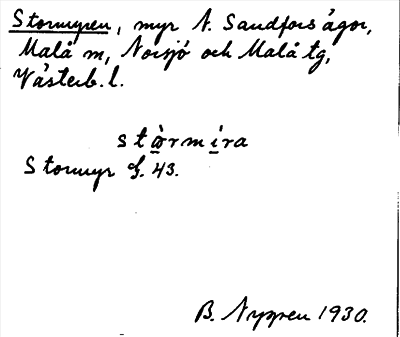 Stormyren, myr N. Sandfors ägor,
Malå m, Norsjö och Malå tg,
Västerb. l.
stòrmíra
Stormyr G. 43.
B. Nygren 1930.